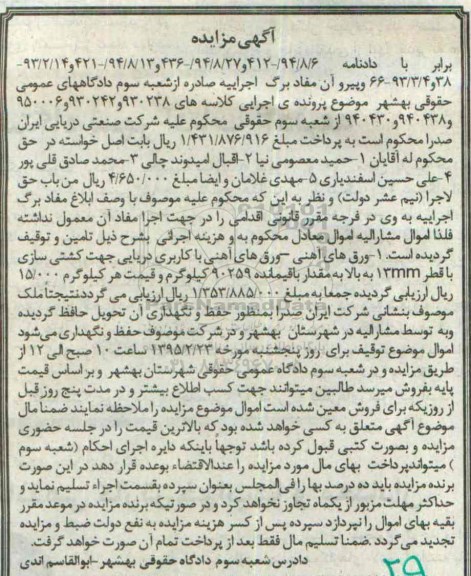 آگهی مزایده
برابر با دادنامه ۹۴/۸/۶-۴۱۲و۹۴/۸/۲۷-۴۳۶و۹۴/۸/۱۳-۴۲۱و۹۳/۲/۱۴-
۳۸و۹۳/۳/۴-۶۶ وپیرو آن مفاد برگ اجراییه صادره ازشعبه سوم دادگاههای عمومی
حقوقی بهشهر موضوع پرونده ی اجرایی کلاسه های ۹۳۰۲۳۸و۹۳۰۲۴۲و۹۵۰۰۰۶
و۹۴۰۴۳۸و۹۴۰۴۳۰ از شعبه سوم حقوقی محکوم علیه شرکت صنعتی دریایی ایران
صدرا محکوم است به پرداخت مبلغ ۱/۴۳۱/۸۷۶/۹۱۶ ریال بابت اصل خواسته در حق
محکوم له آقایان ۱-حمید معصومی نیا ۲-اقبال امیدوند چالی ۳-محمد صادق قلی پور
۴-علی حسین اسفندیاری ۵-مهدی غلامان و ایضا مبلغ ۴/۶۵۰/۰۰۰ ریال من باب حق
لاجرا (نیم عشر دولت) و نظر به این که محکوم علیه موصوف با وصف ابلاغ مفاد برگ
اجراییه به وی در فرجه مقرر قانونی اقدامی را در جهت اجرا مفاد آن معمول نداشته
فلذا اموال مشارالیه اموال معادل محکوم به و هزینه اجرائی بشرح ذیل تامین و توقیف
گردیده است. ۱-ورق های آهنی –ورق های آهنی با کاربری دریایی جهت کشتی سازی
با قطر ۱۳mm به بالا به مقدار باقیمانده ۹۰۲۵۹ کیلوگرم و قیمت هر کیلوگرم ۱۵/۰۰۰
ریال ارزیابی گردیده جمعا به مبلغ ۱/۳۵۳/۸۸۵/۰۰۰ ریال ارزیابی می گردد نتیجتا ملک
موصوف بنشانی شرکت ایران صدرا بمنظور حفظ و نگهداری آن تحویل حافظ گردیده
وبه توسط مشارالیه در شهرستان بهشهر و در شرکت موصوف حفظ و نگهداری می‌شود
اموال موضوع توقیف برای روز پنجشنبه مورخه ۱۳۹۵/۲/۲۳ ساعت ۱۰ صبح الی ۱۲ از
طریق مزایده و در شعبه سوم دادگاه عمومی حقوقی شهرستان بهشهر و بر اساس قیمت
پایه بفروش میرسد طالبین میتوانند جهت کسب اطلاع بیشتر و در مدت پنج روز قبل
از روزیکه برای فروش معین شده است اموال موضوع مزایده را ملاحظه نمایند ضمنا مال
موضوع آگهی متعلق به کسی خواهد شده بود که بالاترین قیمت را در جلسه حضوری
مزایده و بصورت کتبی قبول کرده باشد توجها باینکه دایره اجرای احکام (شعبه سوم
) میتواند پرداخت بهای مال مورد مزایده را عندالاقتضاء بوعده قرار دهد در این صورت
برنده مزایده باید ده درصد بها را فی المجلس بعنوان سپرده بقسمت اجراء تسلیم نماید و
حداکثر مهلت مزبور از یکماه تجاوز نخواهد کرد و در صورتیکه برنده مزایده در موعد مقرر
بقیه بهای اموال را نپردازد سپرده پس از کسر هزینه مزایده به نفع دولت ضبط و مزایده
تجدید می‌گردد .ضمنا تسلیم مال فقط بعد از پرداخت تمام آن صورت خواهد گرفت.
دادرس شعبه سوم دادگاه حقوقی بهشهر –ابوالقاسم اندی
۲۹